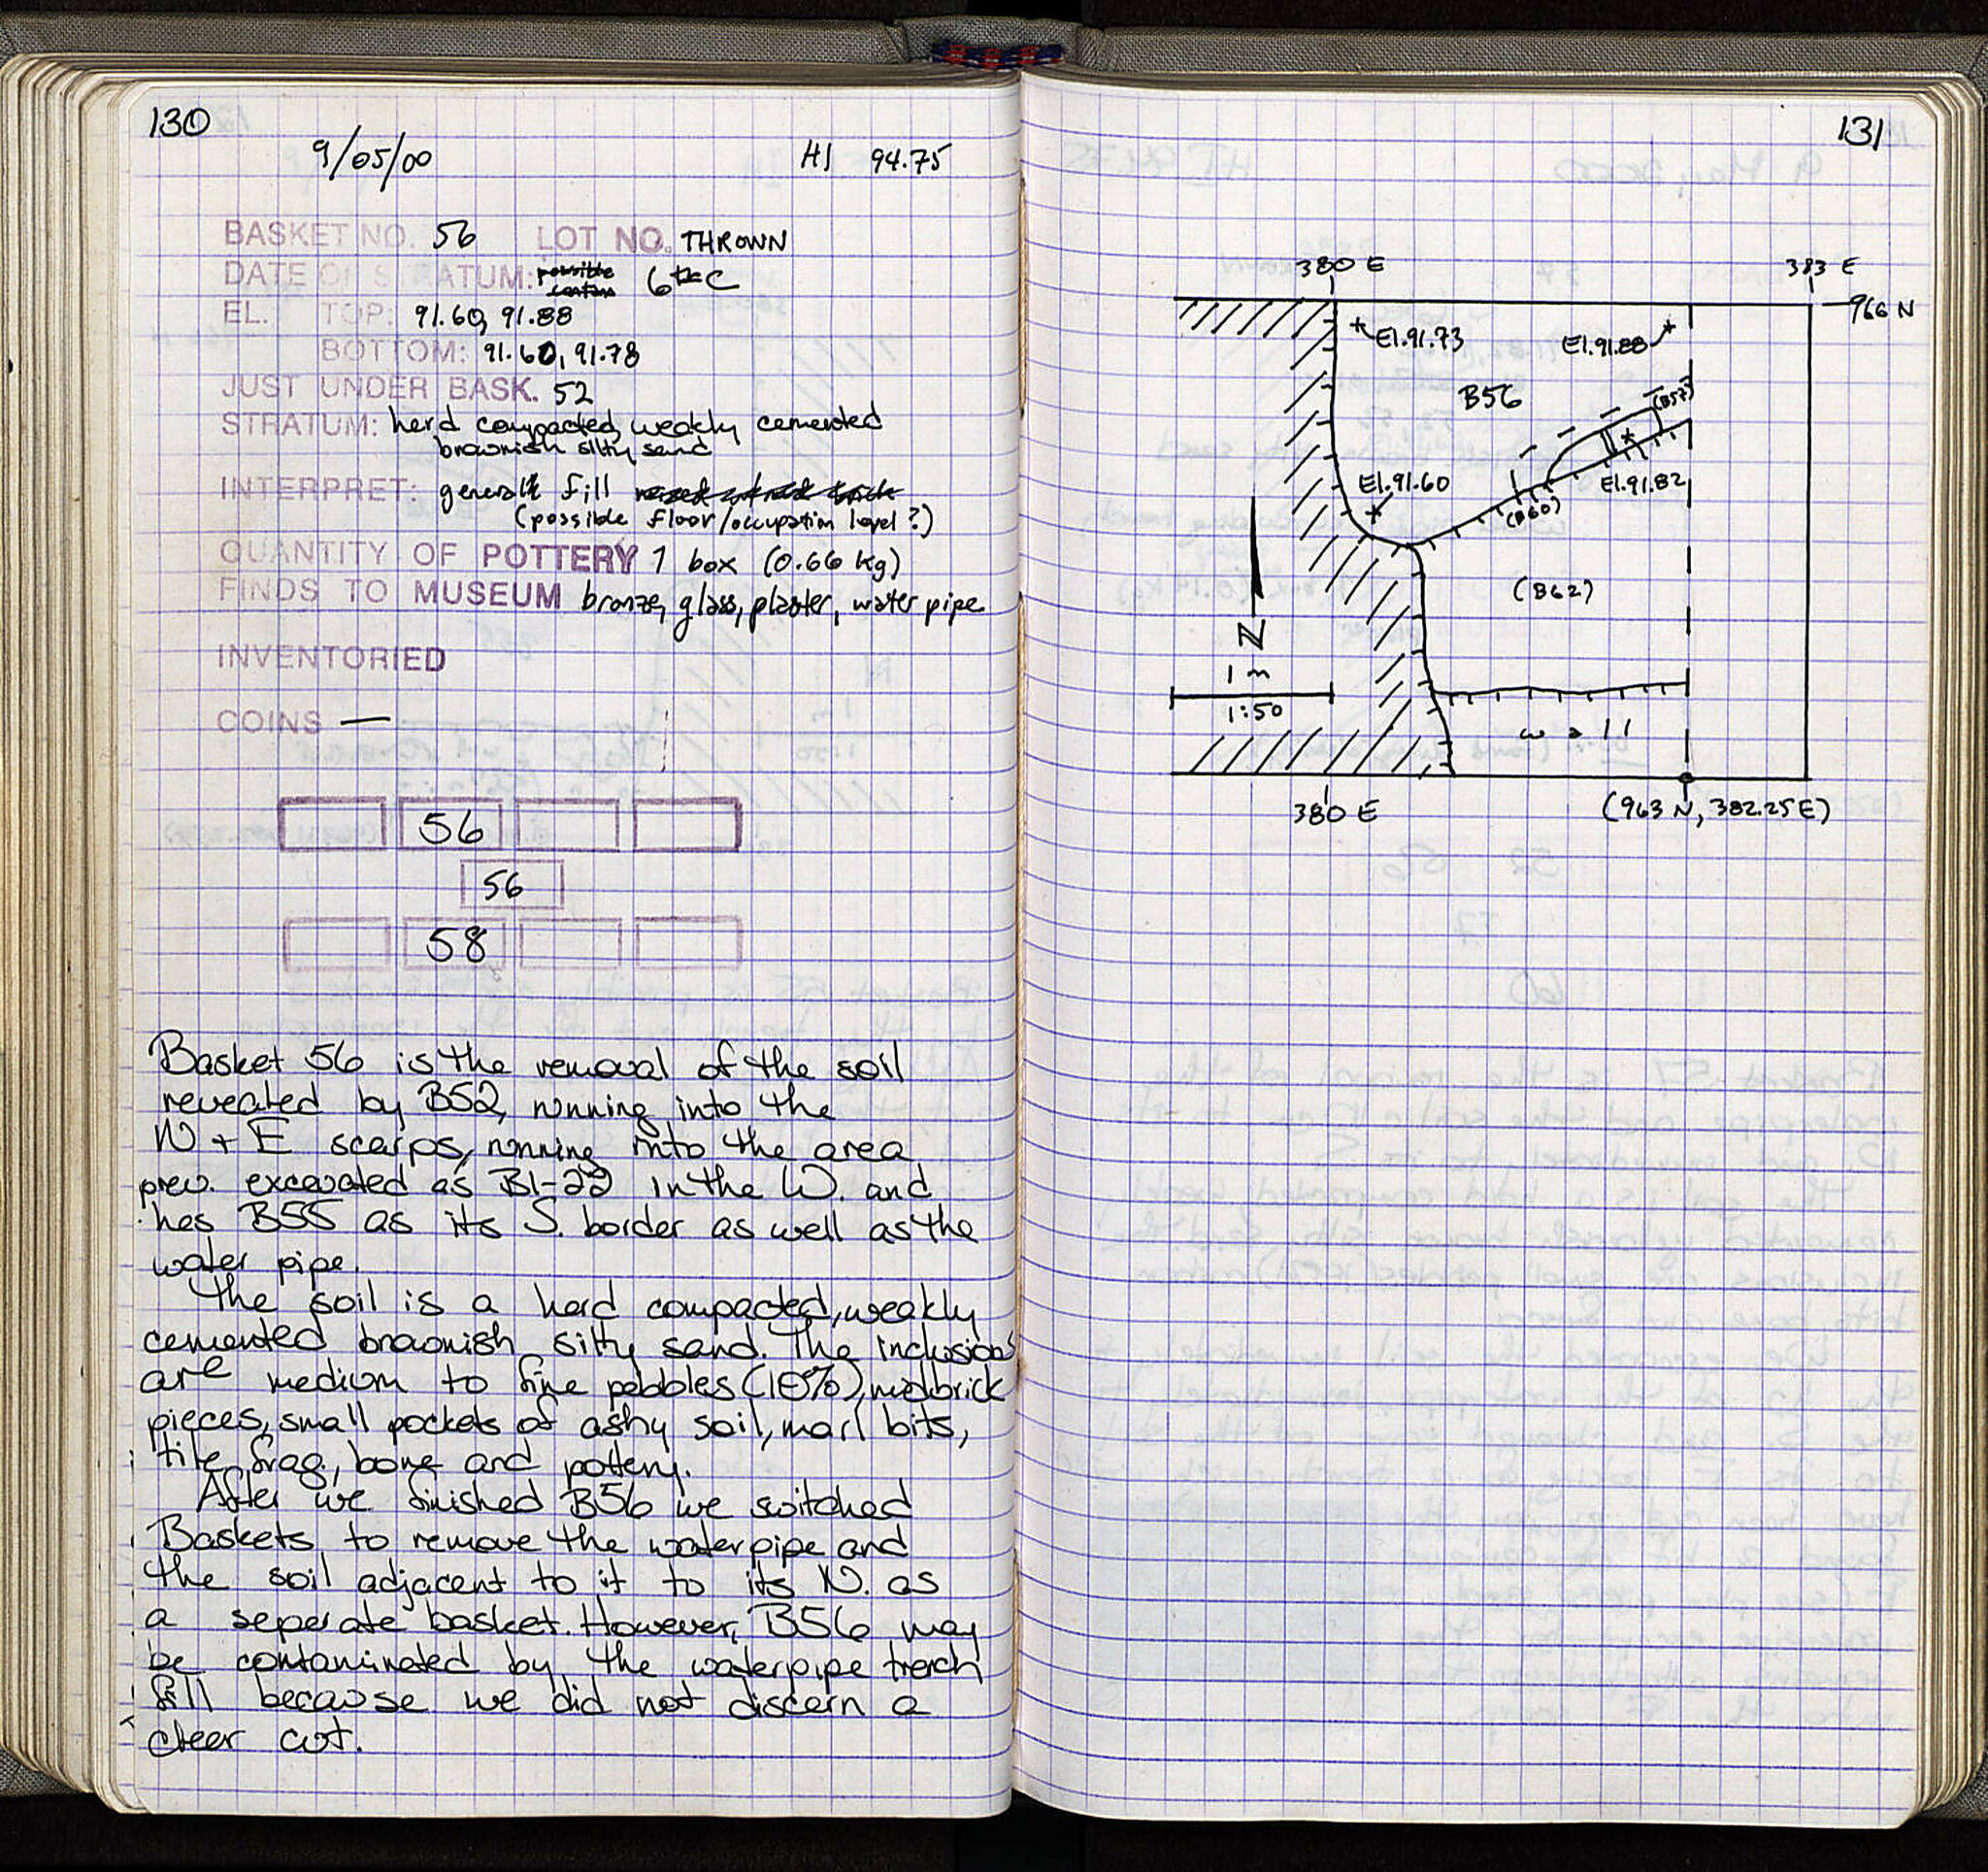 130
9/05/00 HI 94.75
BASKET NO. 56 LOT NO. THROWN
DATE OF STRATUM: possible contam 6th C
EL. TOP: 91.60, 91.88
BOTTOM: 91.60, 91.78
JUST UNDER BASK. 52
STRATUM: hard compacted, weakly cemented
brownish silty sand
INTERPRET: general fill
(possible floor/occupation level?)
QUANTITY OF POTTERY 1 box (0.66 kg)
FINDS TO MUSEUM bronze, glass, plaster, water pipe
INVENTORIED
COINS —
56
56
58
Basket 56 is the removal of the soil
revealed by B52, running into the
N + E scarps, running into the area
prev. excavated as B1-22 in the W. and
has B55 as its S. border as well as the
water pipe.
The soil is a hard compacted, weakly
cemented brownish silty sand. The inclusions
are medium to fine pebbles (10%), mudbrick
pieces, small pockets of ashy soil, marl bits,
tile frag., bone and pottery.
After we finished B56 we switched
Baskets to remove the waterpipe and
the soil adjacent to it to its N. as
a seperate basket. However, B56 may
be contaminated by the waterpipe trench
fill because we did not discern a
clear cut.
131
380 E 383 E
966 N
El. 91.73 El. 91.88
B56 (B57)
El. 91.60 El. 91.82
(B60)
(B62)
N
1 m
1:50
wall
380 E (963 N, 382.25 E)